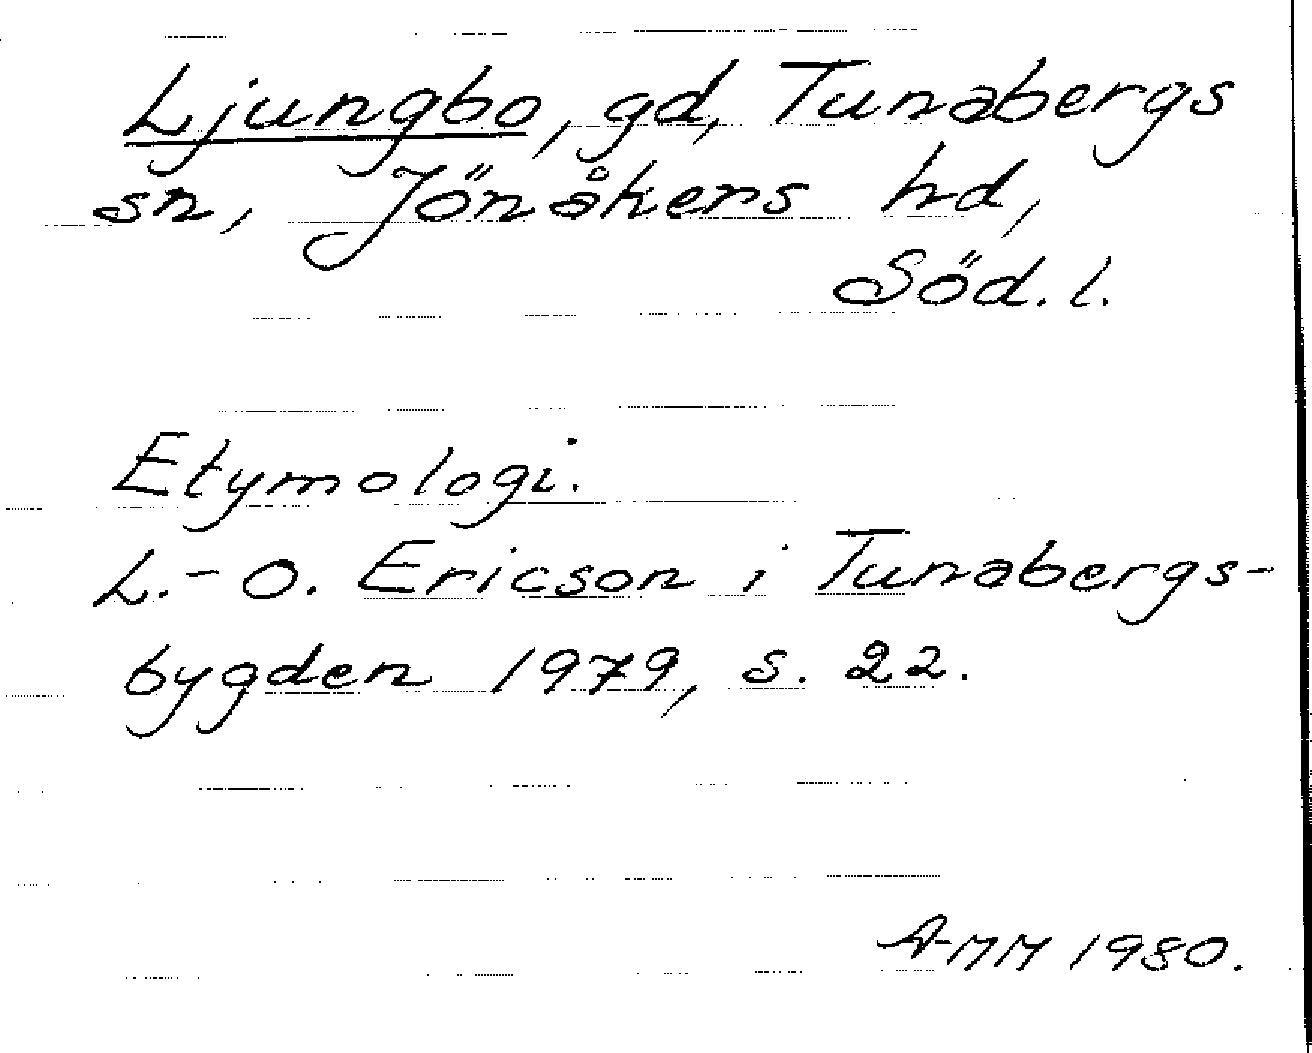 Ljungbo, gd, Tunabergs
sn, Jönåkers hd,
Söd. l.
Etymologi.
L.-O. Ericson i Tunabergs-
bygden 1979, s. 22.
AMM 1980.